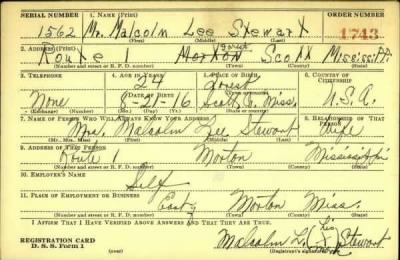 SERIAL NUMBER 1. NAME (Print) ORDER NUMBER
1562 Mr. Malcolm Lee Stewart 1743
(First) (Middle) (Last)
2. ADDRESS (Print)
Route Morton Scott Mississippi
(Number and street or R. F. D. number) (Town) (County) (State)
3. TELEPHONE 4. AGE IN YEARS 5. PLACE OF BIRTH 6. COUNTRY OF CITIZENSHIP
24 Forest
DATE OF BIRTH
None 8-21-16 Scott Co. Miss. U.S.A.
(Exchange) (Number) (Mo.) (Day) (Yr.) (State or country)
7. NAME OF PERSON WHO WILL ALWAYS KNOW YOUR ADDRESS 8. RELATIONSHIP OF THAT PERSON
Mrs. Malcolm Lee Stewart Wife
(Mr., Mrs., Miss) (First) (Middle) (Last)
9. ADDRESS OF THAT PERSON
Route 1 Morton Mississippi
(Number and street or R. F. D. number) (Town) (County) (State)
10. EMPLOYER'S NAME
Self
11. PLACE OF EMPLOYMENT OR BUSINESS
East Morton Miss.
(Number and street or R. F. D. number) (Town) (County) (State)
I AFFIRM THAT I HAVE VERIFIED ABOVE ANSWERS AND THAT THEY ARE TRUE.
REGISTRATION CARD his
D. S. S. Form 1 Malcolm L. (X) Stewart
(over) (Registrant's signature)